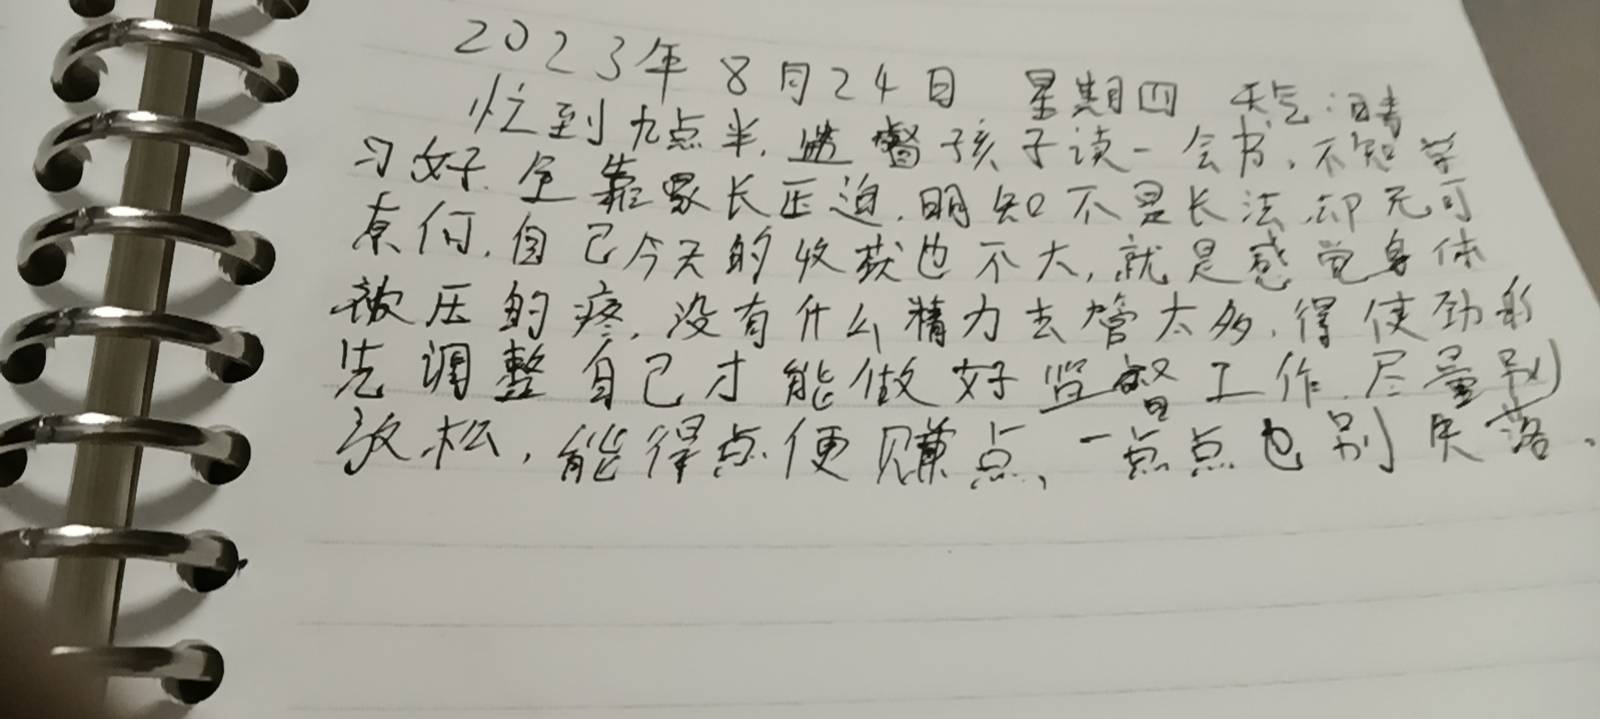 2023年8月24日 星期四 天气:晴
忙到九点半,监督孩子读一会书,不知学
习好,全靠家长压迫,明知不是长法,却无可
奈何,自己今天的收获也不大,就是感觉身体
被压的疼,没有什么精力去管太多,得使劲的
先调整自己才能做好监督工作,尽量别
放松,能得点便赚点,一点点也别失落、